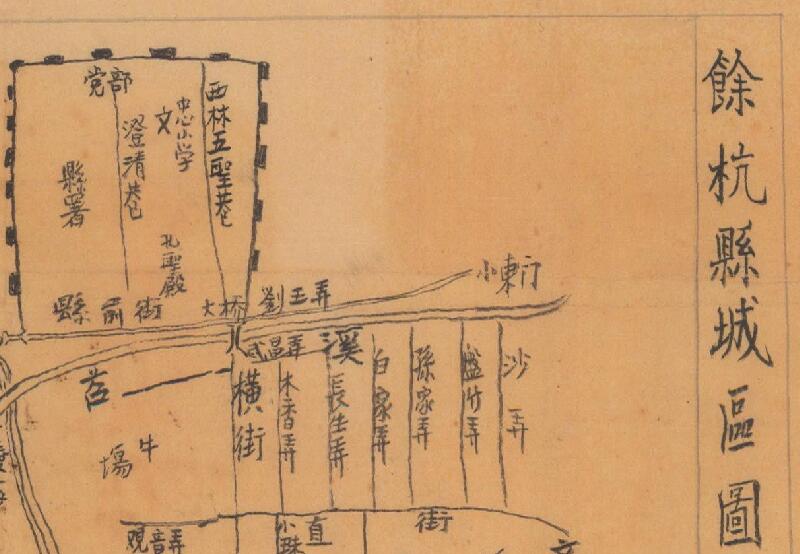 餘杭縣城區圖
党部
西林五聖巷
中心小学
文
澄清巷
縣署
孔聖殿
縣前街
大桥
劉王弄
小東门
咸昌弄
溪
苕
橫街
木香弄
長生弄
白家弄
孫家弄
盛竹弄
沙弄
牛場
直街
观音弄
小珠